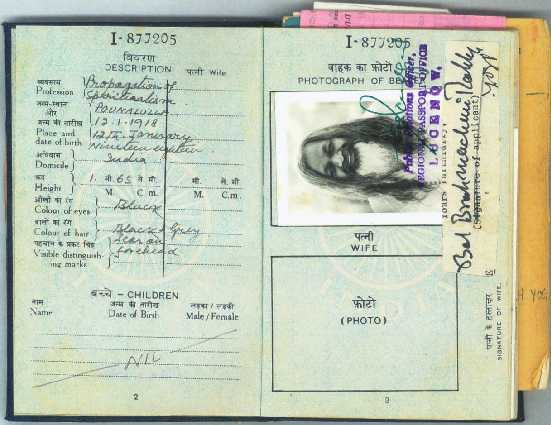 I-877205
विवरण
DESCRIPTION
पत्नी Wife
व्यवसाय
Profession
Propagation of
Spiritualism
जन्म-स्थान
और
जन्म की तारीख
Place and
date of birth
12th January
12-1-1918
Nineteen eighteen
अधिवास
Domicile
India
कद
Height
1. मी. 65 से मी.
M. C.m.
मी. से मी
M. C.m.
आँखों का रंग
Colour of eyes
Black
बालों का रंग
Colour of hair
Black & Grey
Visible distinguish-
ing marks
Scar on
forehead
बच्चे - CHILDREN
नाम
Name
जन्म की तारीख
Date of Birth
लड़का / लड़की
Male / Female
NIL
2
I-877205
वाहक का फोटो
PHOTOGRAPH OF BEARER
REGIONAL PASSPORT OFFICE
LUCKNOW.
Yours faithfully
(Signature of applicant)
Bal Brahmachari
पत्नी
WIFE
फ़ोटो
(PHOTO)
पत्नी के हस्ताक्षर
SIGNATURE OF WIFE
3